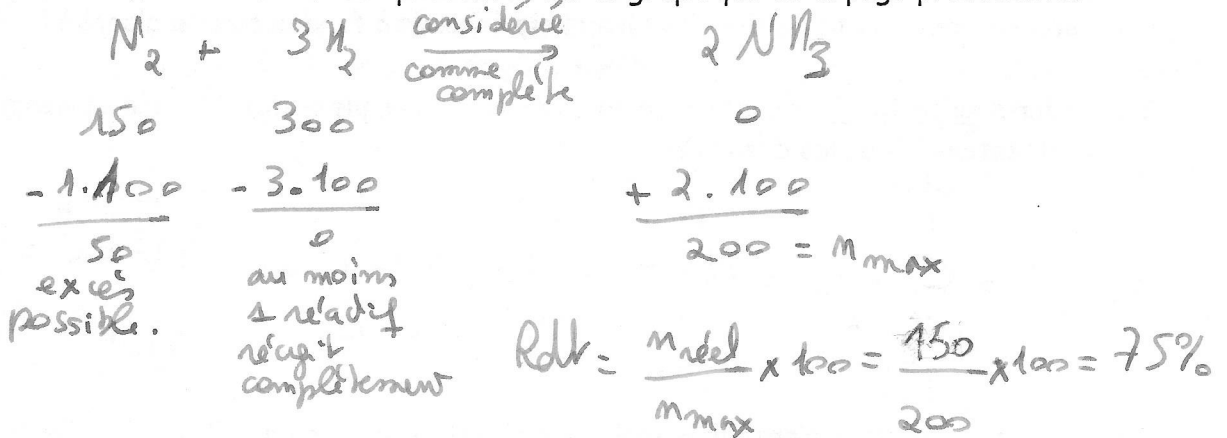 N₂ + 3H₂ considérée comme complète → 2 NH₃
150 300 0
- 1.100 - 3.100 + 2.100
50 0 200 = n max
excès possible.
au moins 1 réactif réagit complètement
Rdt = n réel / n max x 100 = 150 / 200 x 100 = 75%